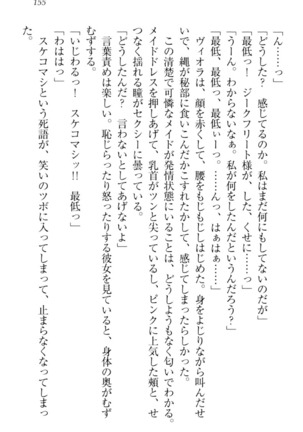 155
「ん……っ」
「どうした？　感じてるのか。私はまだ何にもしてないのだが」
「最低っ！　ジークフリート様が、した、くせに……っ」
「うーん。わからないなぁ。私が何をしたんというんだろう？」
「最低、最低、最低ぃーっ。……んっ、はぁはぁ……」
ヴィオラは、顔を赤くして、腰をもじもじしはじめた。身をよじりながら叫んだせ
いで、縄が秘部に食いこんだかこすれたかして、感じてしまったらしかった。
この清楚で可憐なメイドが発情状態にいることは、どうしようもなく匂いでわかる。
メイドドレスを押しあげて、乳首がツンと尖っているし、ピンクに上気した頬と、せ
つなく揺れる瞳がセクシーに曇っている。
「どうしたんだ？　言わないとしてあげないよ」
言葉責めは楽しい。恥じらったり怒ったりする彼女を見ていると、身体の奥がむず
むずする。
「いじわるっ！　スケコマシッ!!　最低っ」
「わははっ」
スケコマシという死語が、笑いのツボに入ってしまって、止まらなくなってしまっ
た。